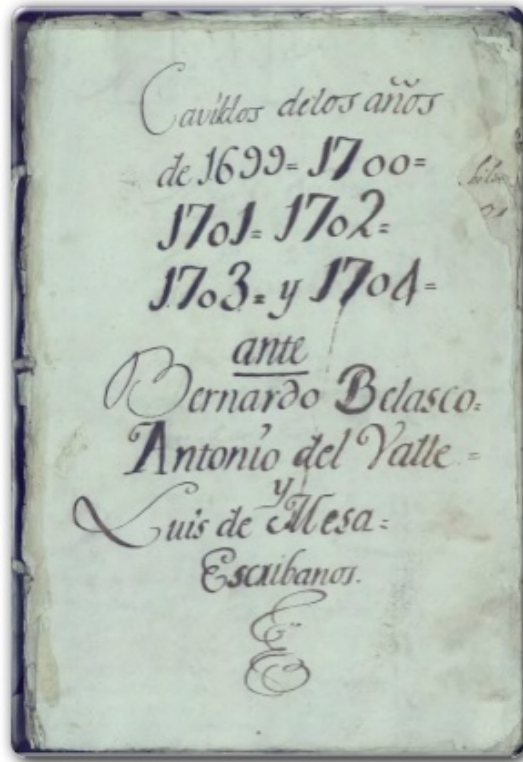 Cavildos delos años
de 1699= 1700=
1701= 1702=
1703= y 1704=
ante
Bernardo Belasco=
Antonio del Valle=
y
Luis de Mesa=
Escribanos.